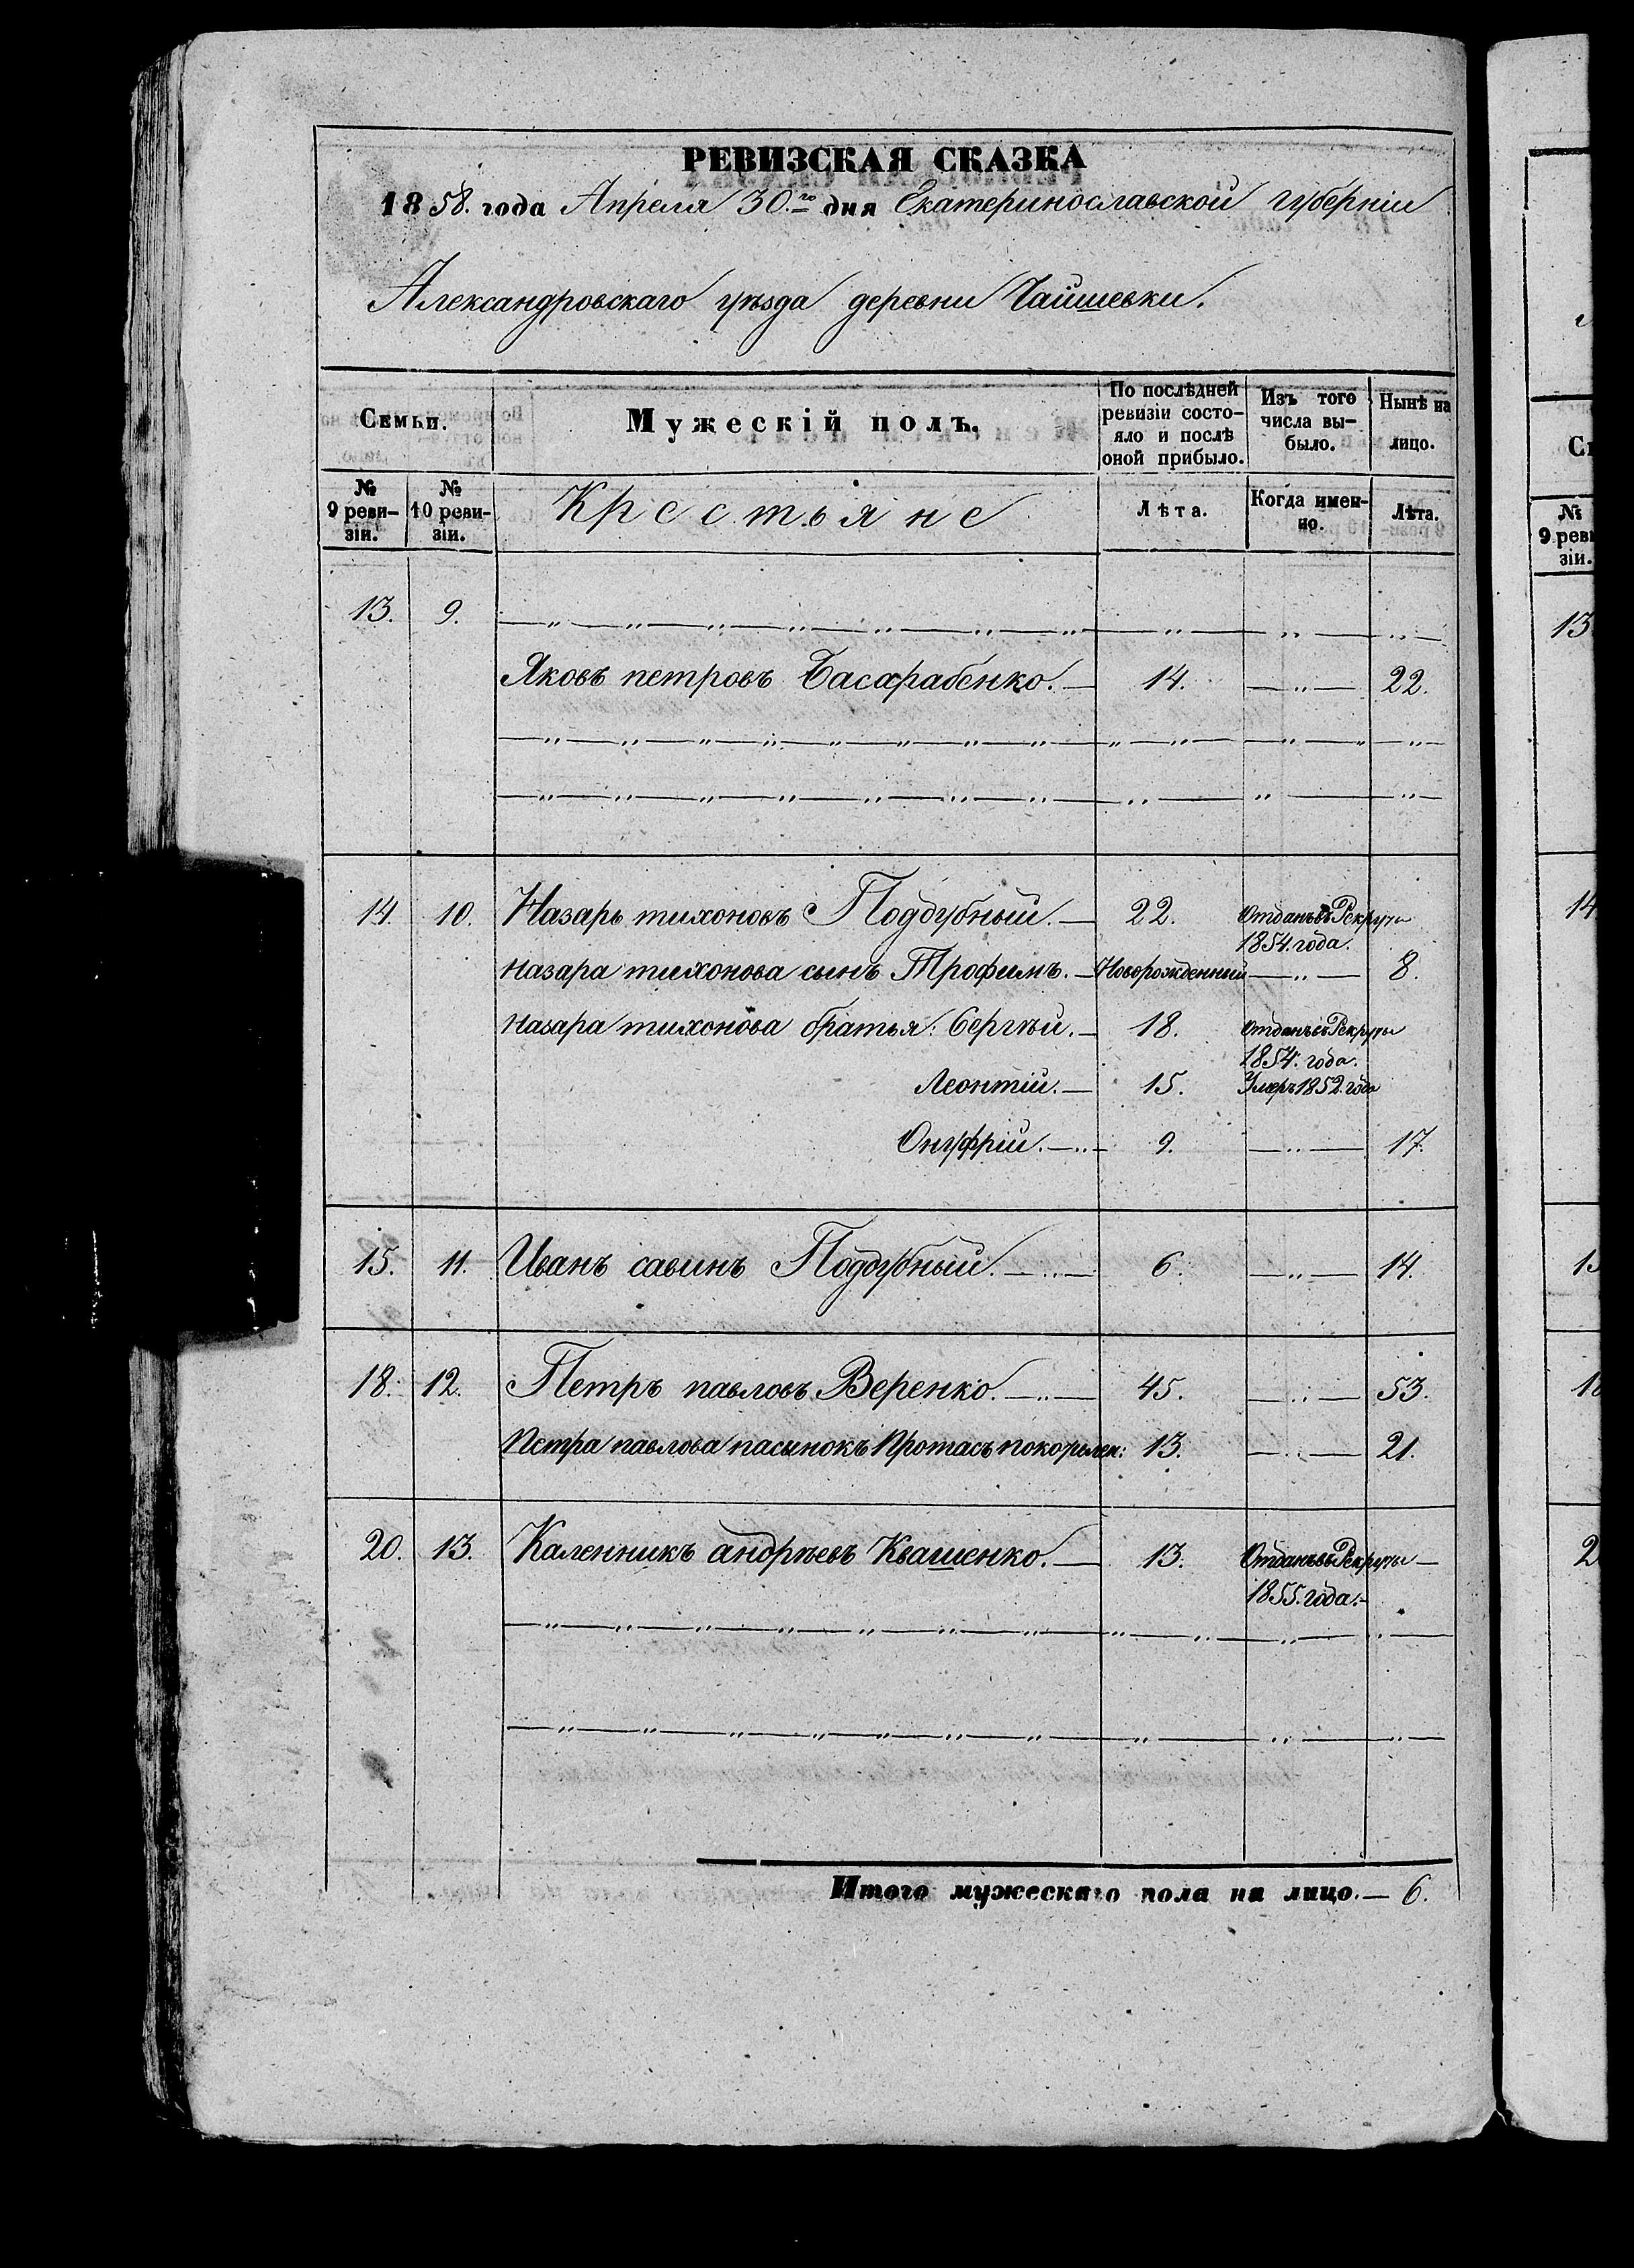 РЕВИЗСКАЯ СКАЗКА
1858. года Апреля 30.го дня Екатеринославской губерніи
Александровскаго уѣзда деревни Чаишевки.
Семьи.
Мужескій полъ.
По послѣдней ревизіи состояло и послѣ оной прибыло.
Изъ того числа выбыло.
Нынѣ на лицо.
№ 9 ревизіи.
№ 10 ревизіи.
Крестьяне
Лѣта.
Когда именно.
Лѣта.
13. 9. —„—„—„—„—„—„—„—„—„—
Яковъ петровъ Басарабенко.— 14. —„— 22.
—„—„—„—„—„—„—„—„—„—„—
—„—„—„—„—„—„—„—„—„—„—
14. 10. Назаръ тихоновъ Поддубный.— 22. Отданъ въ Рекруты
1854. года.
Назара тихонова сынъ Трофимъ.— Новорожденный —„— 8.
Назара тихонова братья: Сергѣй.— 18. Отданъ въ Рекруты
1854. года.
Леонтій.— 15. Умеръ 1852. года
Онуфрій.—„— 9. —„— 17.
15. 11. Иванъ савинъ Поддубный.—„— 6. —„— 14.
18. 12. Петръ павловъ Веренко.—„— 45. —„— 53.
Петра павлова пасынокъ Протасъ 13. —„— 21.
20. 13. Каленникъ андрѣевъ Квашенко.— 13. Отданъ въ Рекруты—
1855. года.—
—„—„—„—„—„—„—„—„—„—„—
—„—„—„—„—„—„—„—„—„—„—
Итого мужескаго пола на лицо.— 6.
13
14
15
18
2
№ 9 реви
зіи.